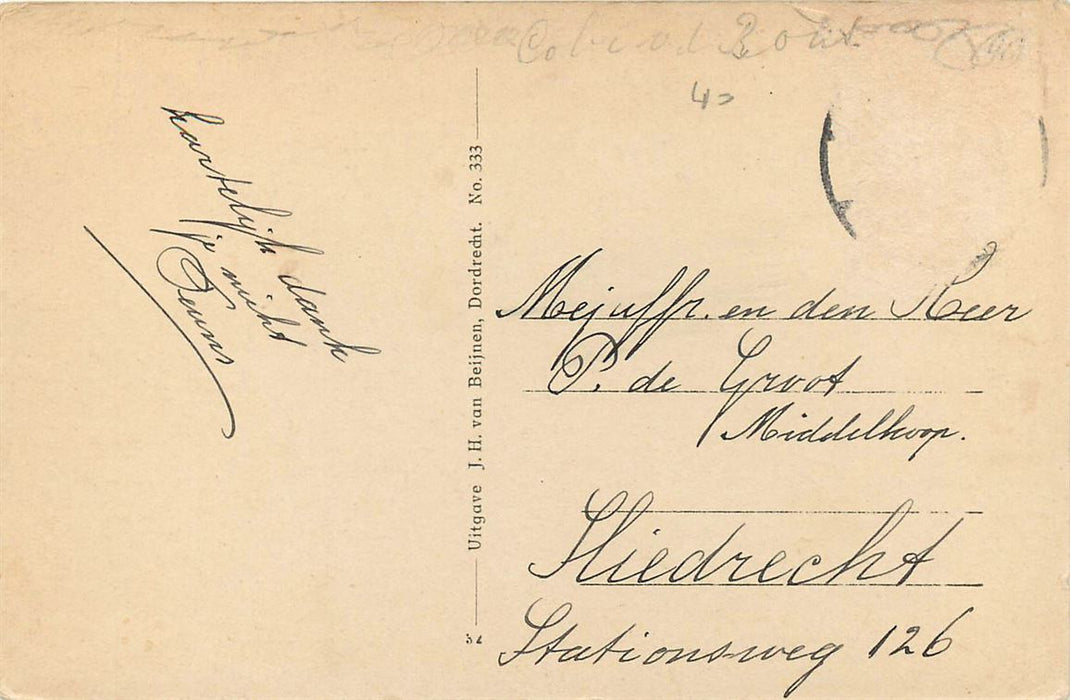 40
hartelijk dank
je nicht
Teuns
Uitgave J. H. van Beijnen, Dordrecht. No. 333
Mejuffr. en den Heer
P. de Groot
Middelkoop.
Sliedrecht
Stationsweg 126